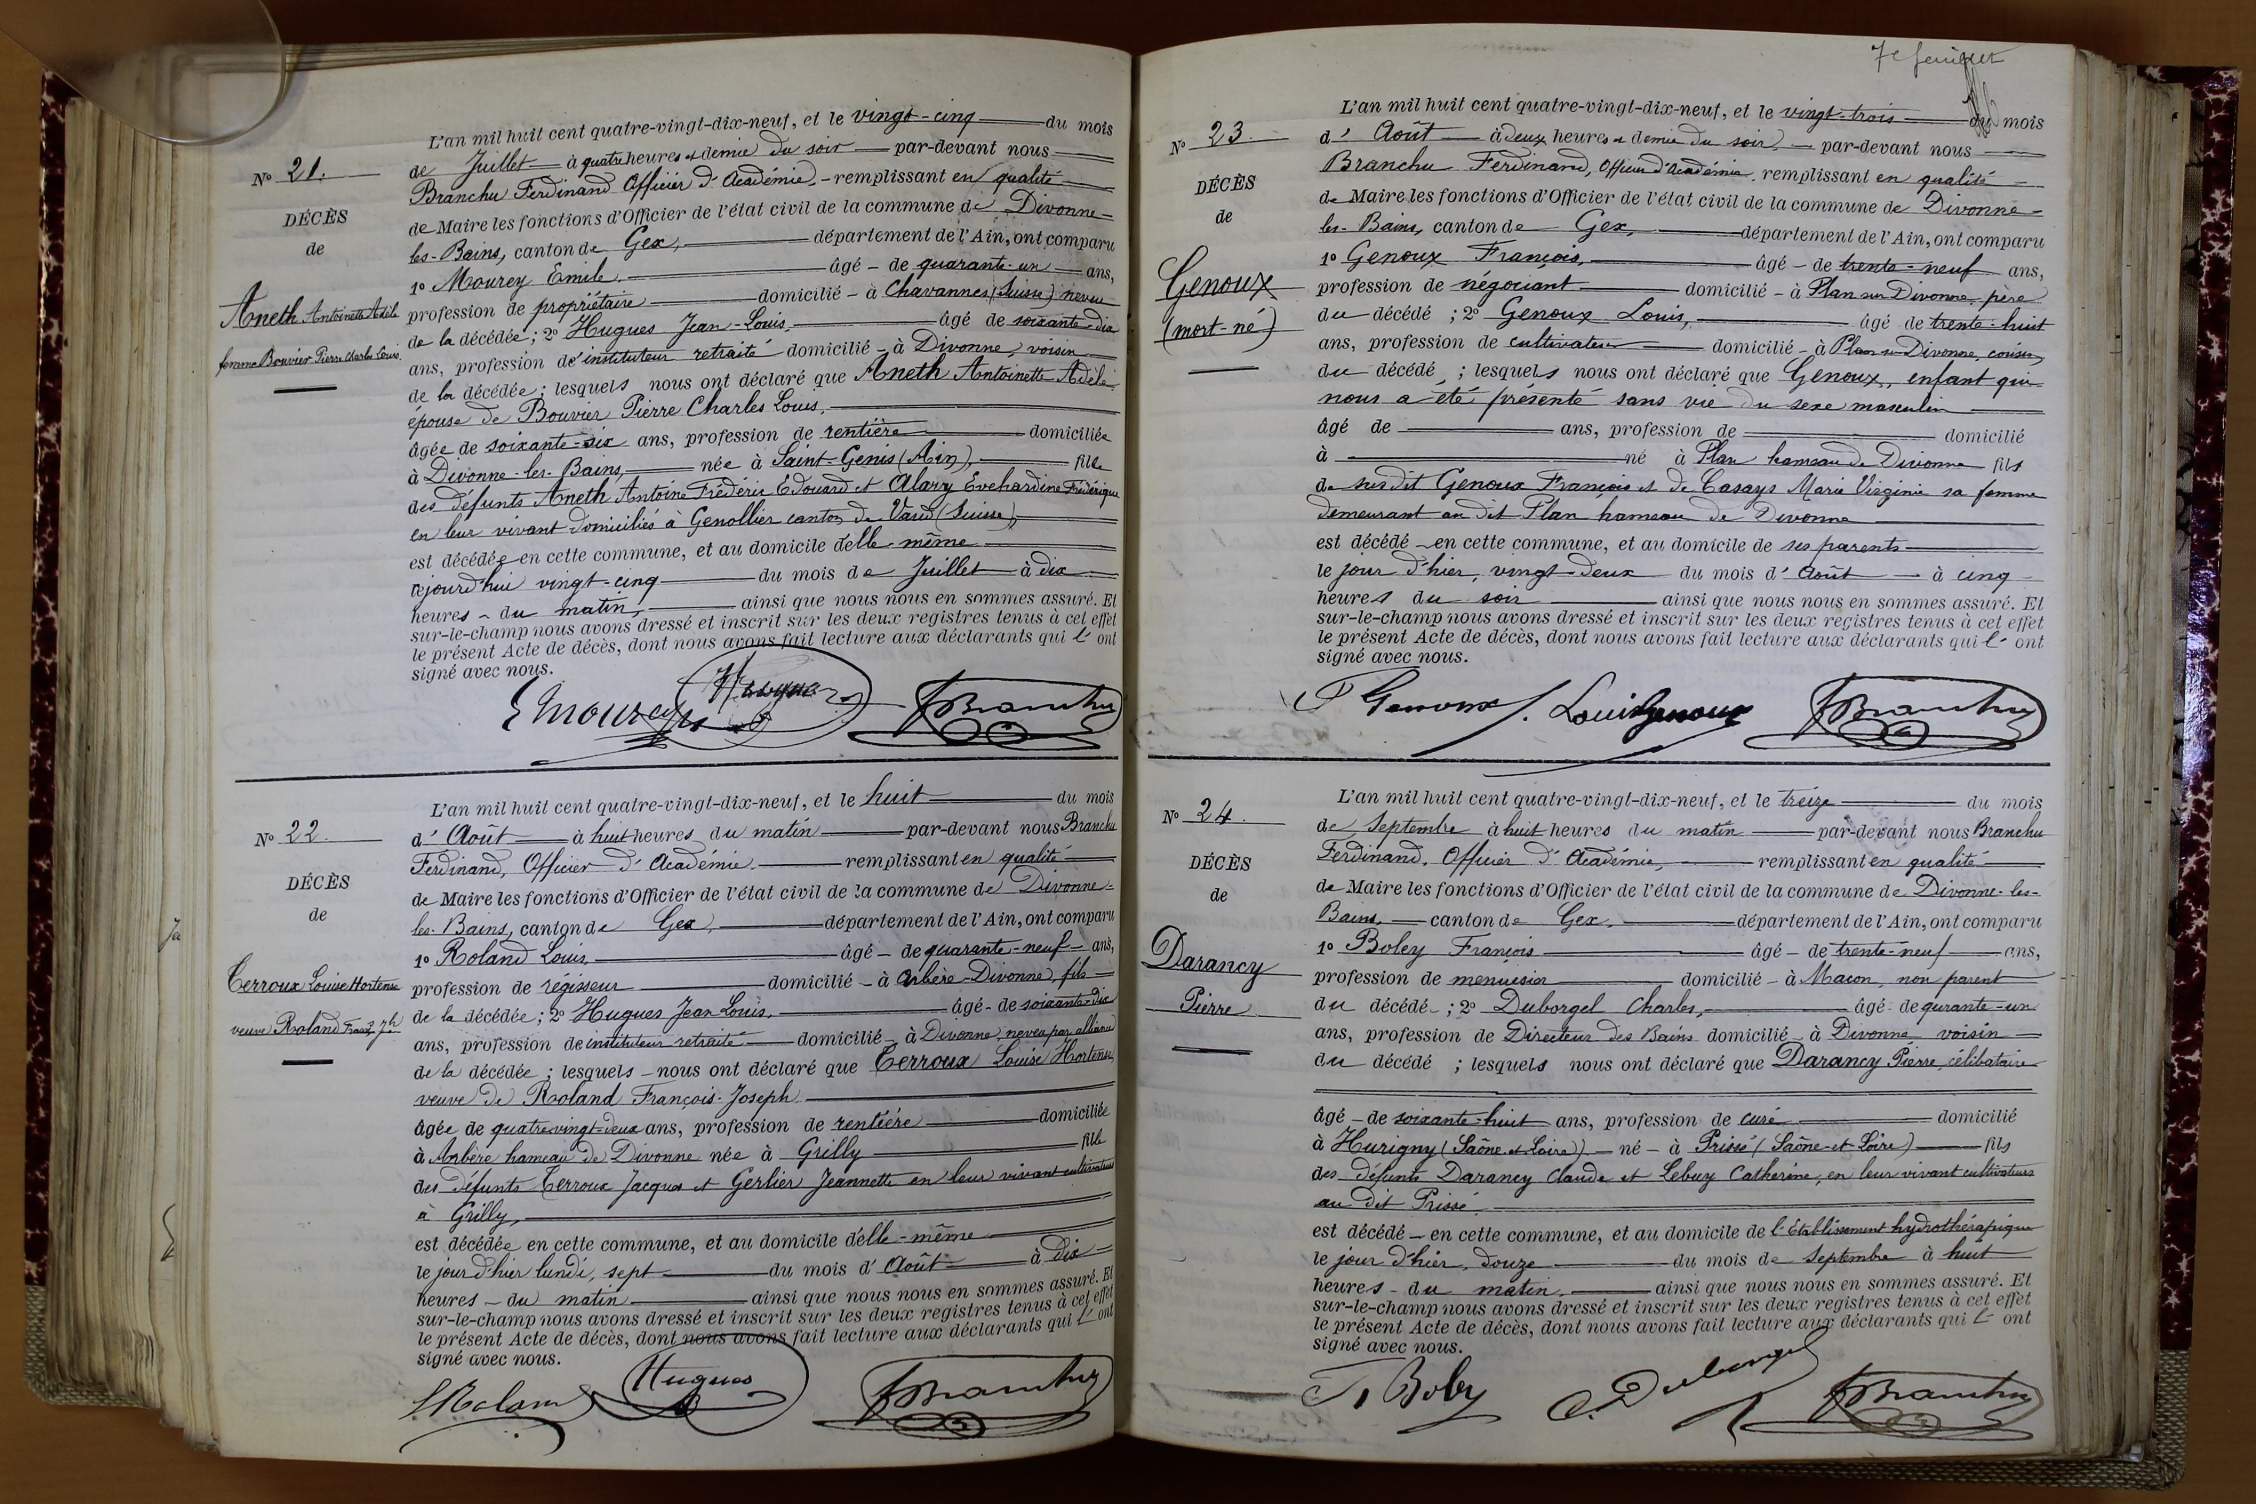 N° 21.
DÉCÈS
de
Aneth Antoinette Adèle
femme Bouvier Pierre Charles Louis
L'an mil huit cent quatre-vingt-dix-neuf, et le vingt-cinq du mois
de Juillet à quatre heures et demie du soir par-devant nous
Branchu Ferdinand Officier d'Académie, remplissant en qualité
de Maire les fonctions d'Officier de l'état civil de la commune de Divonne-
les-Bains, canton de Gex, département de l'Ain, ont comparu
1° Mourey Emile âgé de quarante-un ans,
profession de propriétaire domicilié à Chavannes (Suisse) neveu
de la décédée; 2° Hugues Jean-Louis, âgé de soixante-dix
ans, profession d'instituteur retraité domicilié à Divonne, voisin
de la décédée; lesquels nous ont déclaré que Aneth Antoinette Adèle
épouse de Bouvier Pierre Charles Louis,
âgée de soixante-six ans, profession de rentière domiciliée
à Divonne-les-Bains, née à Saint-Genis (Ain), fille
des défunts Aneth Antoine Frédéric Edouard et Alavy Evehardine Frédérique
en leur vivant domiciliés à Genollier canton de Vaud (Suisse),
est décédée en cette commune, et au domicile d'elle-même
cejourd'hui vingt-cinq du mois de Juillet à dix
heures du matin, ainsi que nous nous en sommes assuré. Et
sur-le-champ nous avons dressé et inscrit sur les deux registres tenus à cet effet
le présent Acte de décès, dont nous avons fait lecture aux déclarants qui l'ont
signé avec nous.
E Mourey Hugues FBranchu
N° 22.
DÉCÈS
de
Terroux Louise Hortense
veuve Roland Franç. Jh
L'an mil huit cent quatre-vingt-dix-neuf, et le huit du mois
d'Août à huit heures du matin par-devant nous Branchu
Ferdinand, Officier d'Académie remplissant en qualité
de Maire les fonctions d'Officier de l'état civil de la commune de Divonne-
les-Bains, canton de Gex, département de l'Ain, ont comparu
1° Roland Louis âgé de quarante-neuf ans,
profession de régisseur domicilié à Arbère-Divonne, fils
de la décédée; 2° Hugues Jean Louis, âgé de soixante-dix
ans, profession de instituteur retraité domicilié à Divonne, neveu par alliance
de la décédée; lesquels nous ont déclaré que Terroux Louise Hortense,
veuve de Roland François-Joseph
âgée de quatre-vingt-deux ans, profession de rentière domiciliée
à Arbère hameau de Divonne née à Grilly fille
des défunts Terroux Jacques et Gerlier Jeannette en leur vivant cultivateurs
à Grilly,
est décédée en cette commune, et au domicile d'elle-même
le jour d'hier lundi, sept du mois d'Août à dix
heures du matin ainsi que nous nous en sommes assuré. Et
sur-le-champ nous avons dressé et inscrit sur les deux registres tenus à cet effet
le présent Acte de décès, dont nous avons fait lecture aux déclarants qui l'ont
signé avec nous.
LRoland Hugues FBranchu
7e feuillet
N° 23.
DÉCÈS
de
Genoux
(mort-né)
L'an mil huit cent quatre-vingt-dix-neuf, et le vingt-trois du mois
d'Août à deux heures et demie du soir, par-devant nous
Branchu Ferdinand, Officier d'Académie, remplissant en qualité
de Maire les fonctions d'Officier de l'état civil de la commune de Divonne-
les-Bains, canton de Gex, département de l'Ain, ont comparu
1° Genoux François, âgé de trente-neuf ans,
profession de négociant domicilié à Plan sur Divonne, père
du décédé; 2° Genoux Louis, âgé de trente-huit
ans, profession de cultivateur domicilié à Plan sur Divonne, cousin
du décédé; lesquels nous ont déclaré que Genoux, enfant qui
nous a été présenté sans vie du sexe masculin
âgé de ans, profession de domicilié
à né à Plan hameau de Divonne fils
de susdit Genoux François et de Casays Marie Virginie sa femme
demeurant au dit Plan hameau de Divonne
est décédé en cette commune, et au domicile de ses parents
le jour d'hier, vingt-deux du mois d'Août à cinq
heures du soir ainsi que nous nous en sommes assuré. Et
sur-le-champ nous avons dressé et inscrit sur les deux registres tenus à cet effet
le présent Acte de décès, dont nous avons fait lecture aux déclarants qui l'ont
signé avec nous.
F Genoux Louis Genoux FBranchu
N° 24.
DÉCÈS
de
Darancy
Pierre
L'an mil huit cent quatre-vingt-dix-neuf, et le treize du mois
de Septembre à huit heures du matin par-devant nous Branchu
Ferdinand, Officier d'Académie, remplissant en qualité
de Maire les fonctions d'Officier de l'état civil de la commune de Divonne-les-
Bains, canton de Gex, département de l'Ain, ont comparu
1° Boley François âgé de trente-neuf ans,
profession de menuisier domicilié à Macon, non parent
du décédé; 2° Duborgel Charles, âgé de qurante-un
ans, profession de Directeur des Bains domicilié à Divonne voisin
du décédé; lesquels nous ont déclaré que Darancy Pierre, célibataire
âgé de soixante-huit ans, profession de curé domicilié
à Hurigny (Saône et Loire) né à Prissé (Saône-et-Loire) fils
des défunts Darancy Claude et Lebuy Catherine, en leur vivant cultivateurs
au dit Prissé.
est décédé en cette commune, et au domicile de l'Etablissement hydrothérapique
le jour d'hier, douze du mois de Septembre à huit
heures du matin, ainsi que nous nous en sommes assuré. Et
sur-le-champ nous avons dressé et inscrit sur les deux registres tenus à cet effet
le présent Acte de décès, dont nous avons fait lecture aux déclarants qui l'ont
signé avec nous.
F Boley C. Duborgel FBranchu